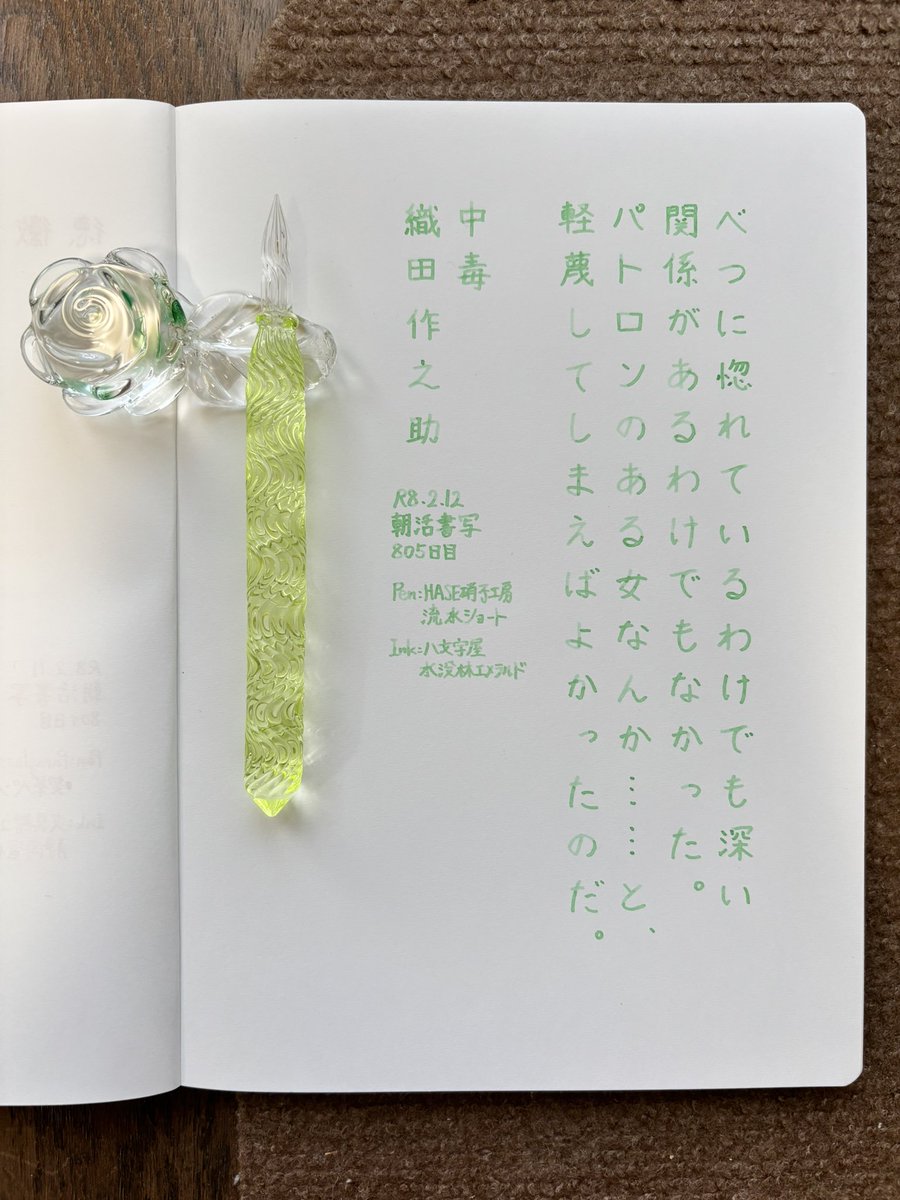 べつに惚れているわけでも深い
関係があるわけでもなかった。
パトロンのある女なんか……と、
軽蔑してしまえばよかったのだ。
中毒
織田作之助
R8.2.12
朝活書写
805日目
Pen:HASE硝子工房
流水ショート
Ink:八文字屋
水没林エメラルド